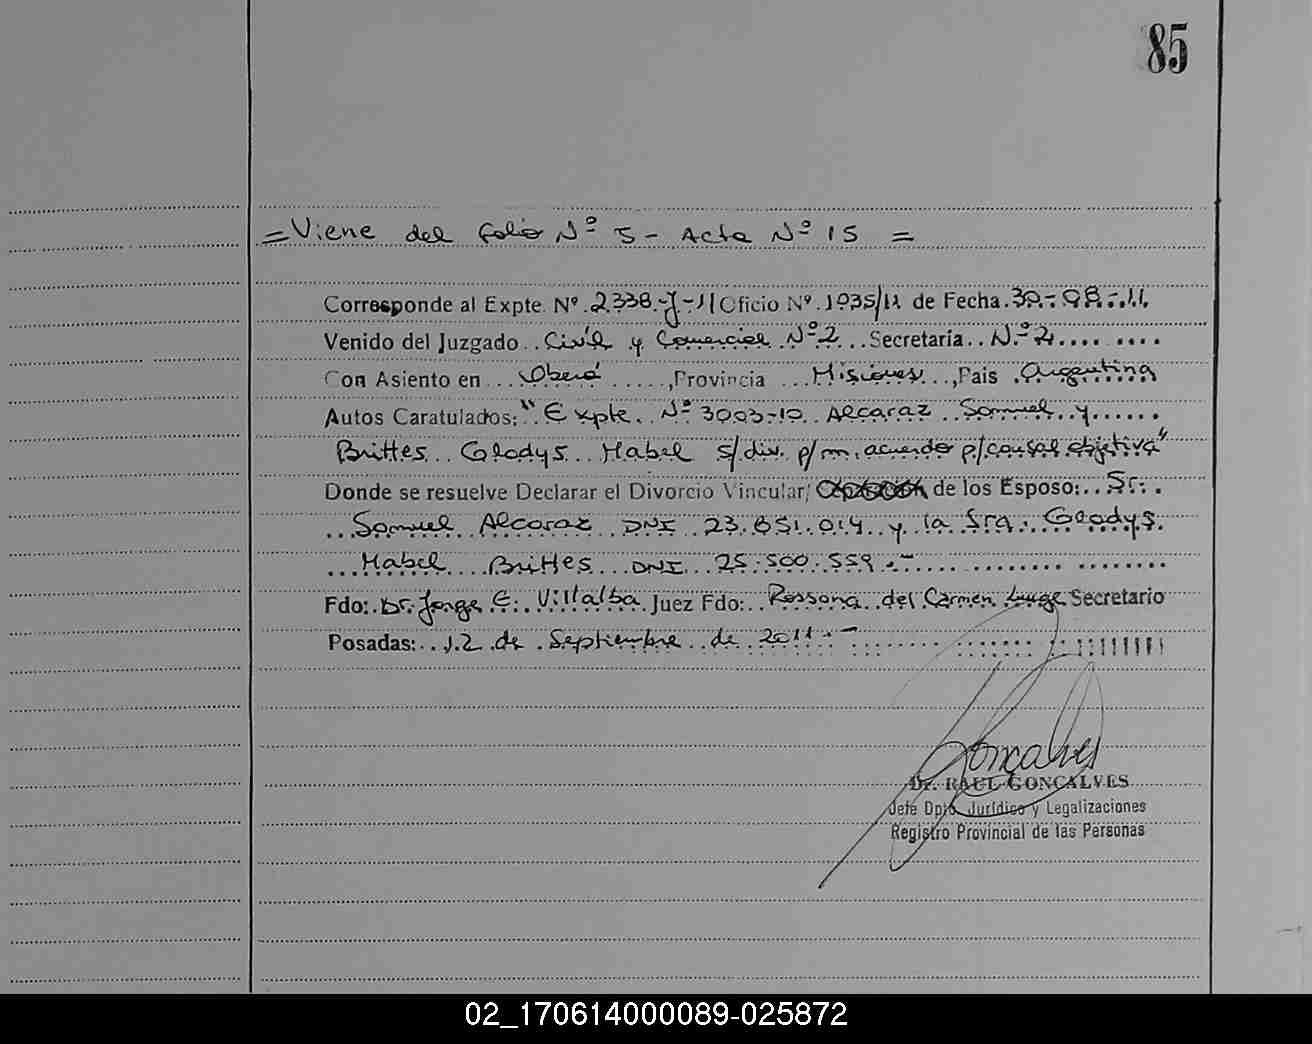 85
= Viene del folio Nº 5 - Acta Nº 15 =
Corresponde al Expte. Nº 2338-J-11 Oficio Nº 1035/11 de Fecha 30-08-11.
Venido del Juzgado Civil y Comercial Nº 2 Secretaria Nº 2
Con Asiento en Oberá, Provincia Misiones, Pais Argentina
Autos Caratulados: "Expte. Nº 3003-10 Alcaraz Samuel y
Brittes Gladys Mabel s/div. p/m. acuerdo p/causal objetiva"
Donde se resuelve Declarar el Divorcio Vincular/ de los Esposo: Sr.
Samuel Alcaraz DNI 23.851.014 y la Sra. Gladys
Mabel Brittes DNI 25.500.559.-
Fdo: Dr. Jorge E. Villalba Juez Fdo: Rossana del Carmen Secretario
Posadas: 12 de Septiembre de 2011.-
Goncalves
Dr. RAUL GONCALVES
Jefe Dpto. Jurídico y Legalizaciones
Registro Provincial de las Personas
02_170614000089-025872